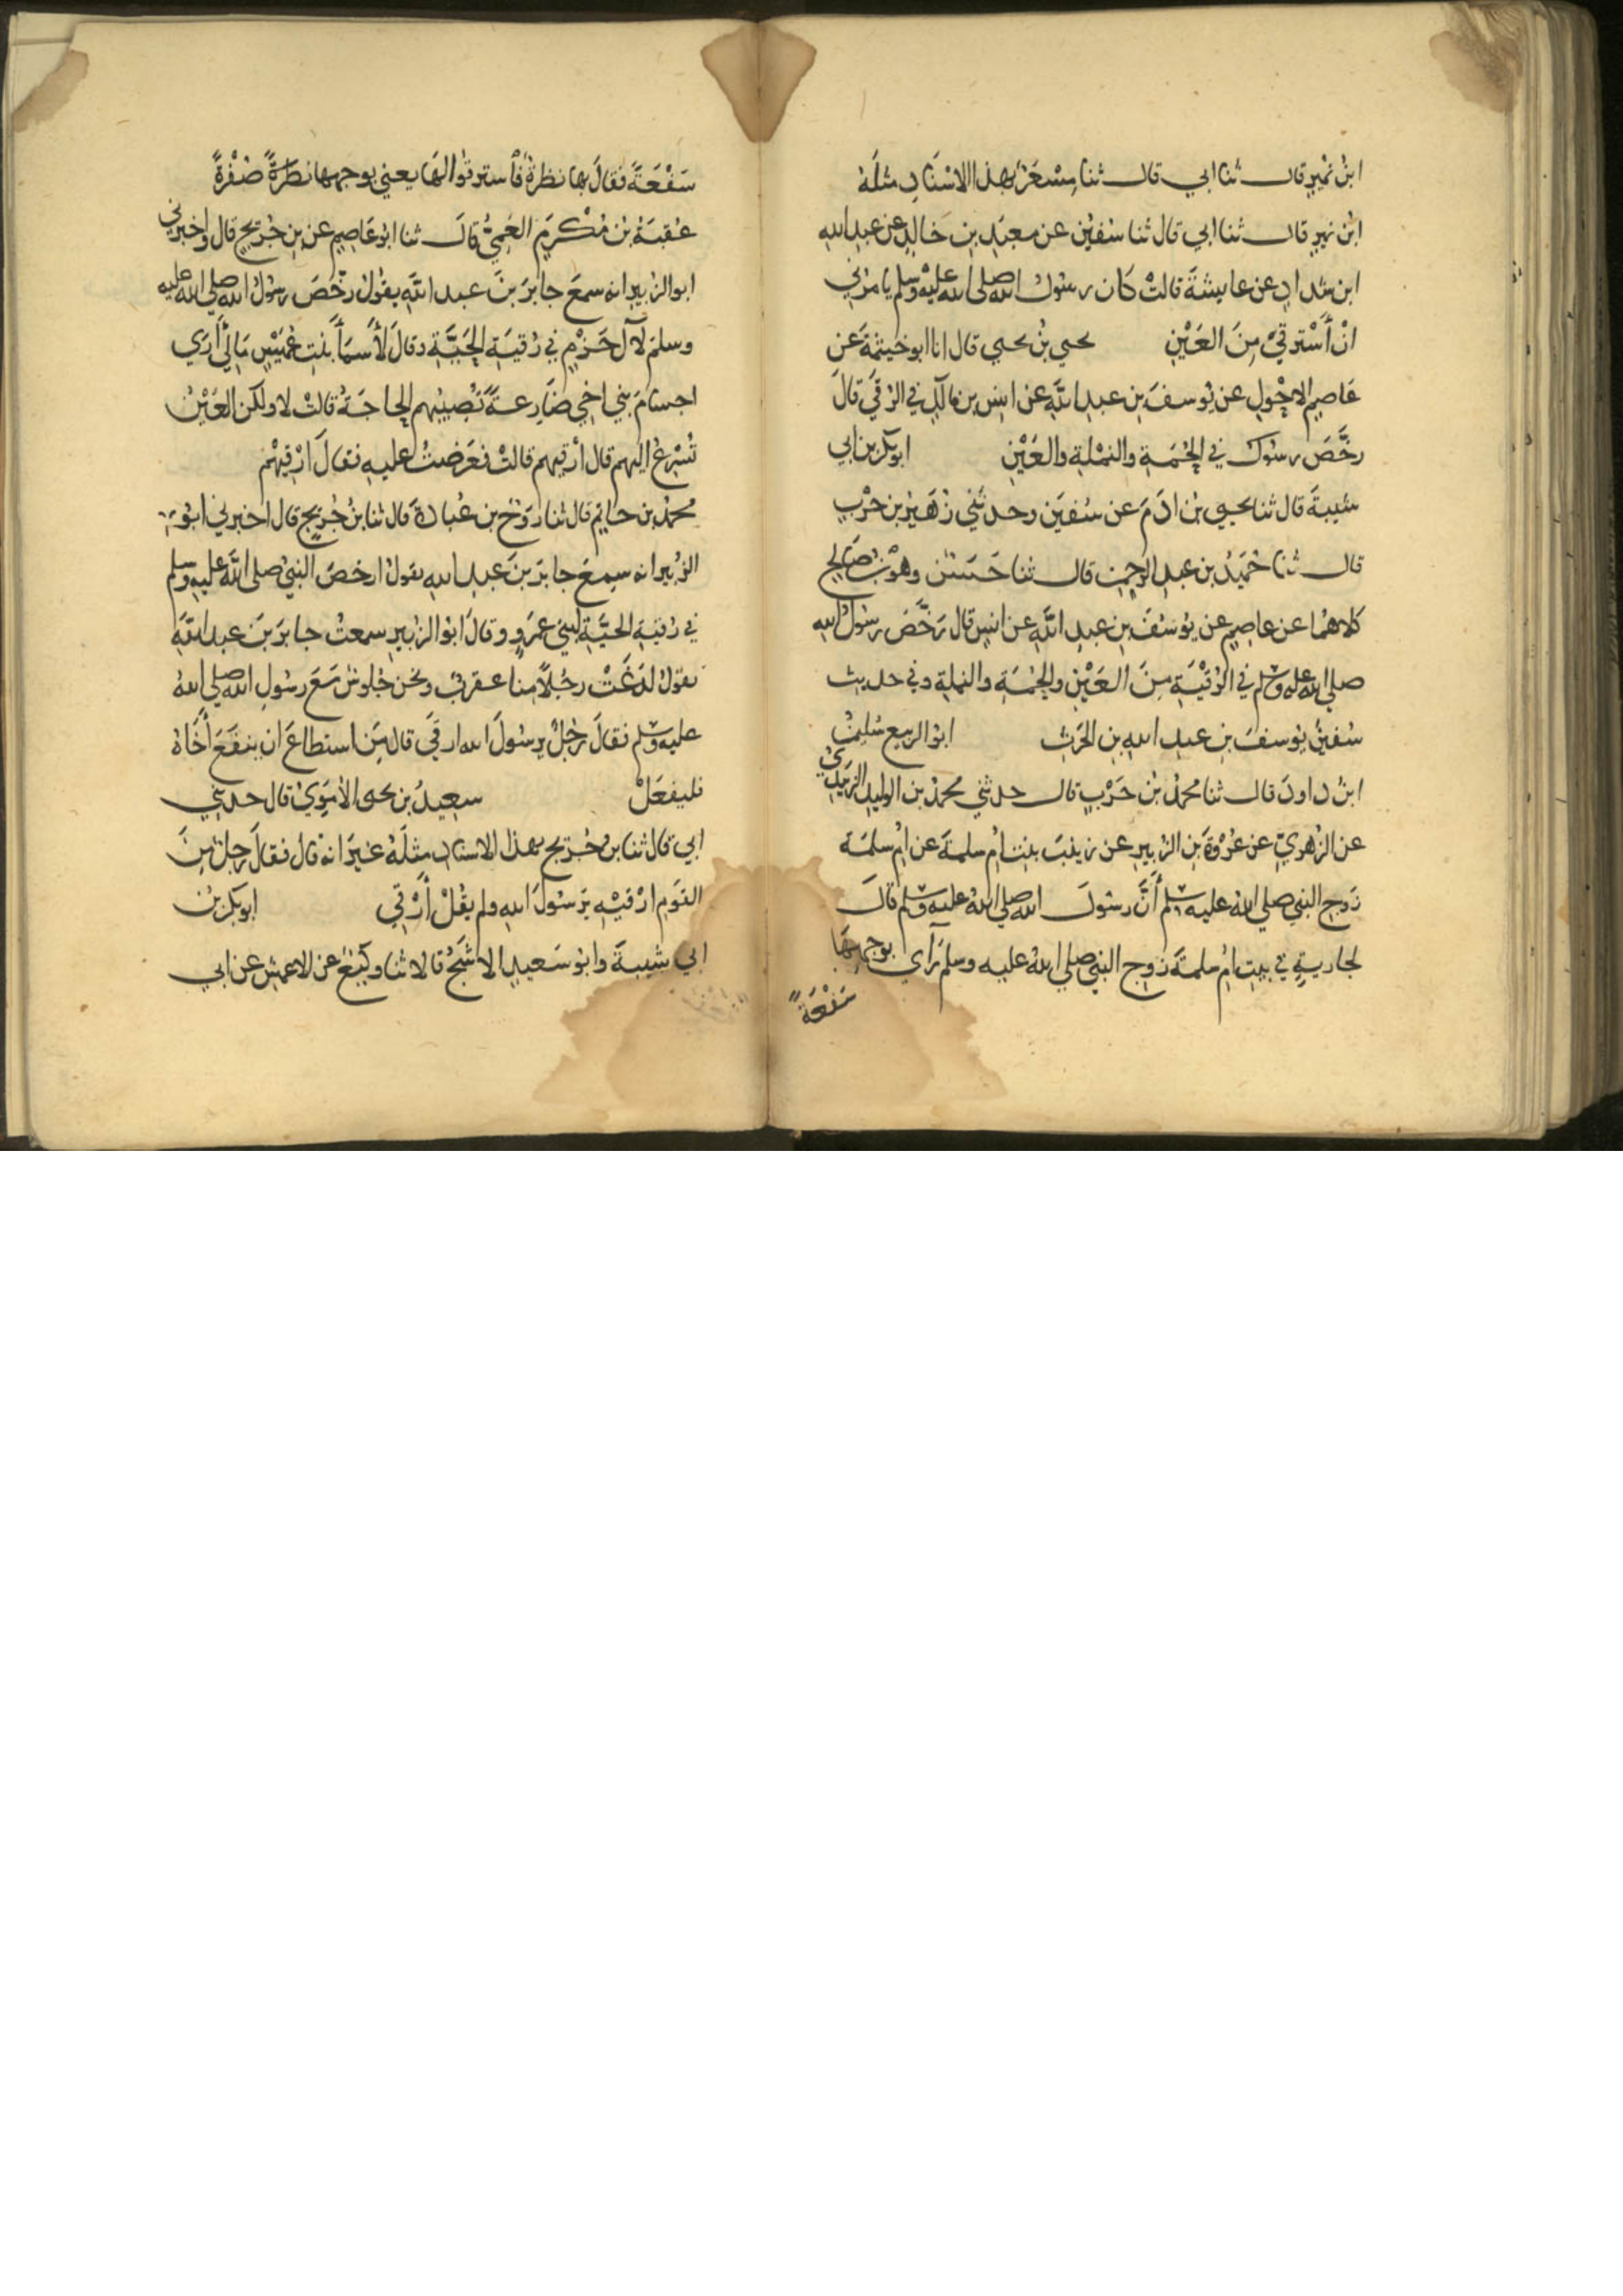 ابنُ نُمَيرٍ قال ثنا ابي قال ثنا مِسْعَرٌ بهذا الاسْنَادِ مثلَهُ
ابنُ نميرٍ قال ثنا ابي قال ثنا سُفيٰن عن معبَدِ بنِ خَالِدٍ عن عبدِ اللهِ
ابن شدادٍ عن عايشةَ قالتْ كان رسولُ الله صلى الله عليْه وسلم يامرُني
انْ أَسْترقيَ مِنَ العَيْنِ يحيي بنُ يحيي قال انا ابو خيثمةَ عن
عَاصِمٍ الاحْوَلِ عن يُوسفَ بنِ عبدِ اللهِ عن انسِ بن مالكٍ في الرُقَي قالَ
رخَّصَ رسُول في الحُمَةِ والنمْلةِ والعَيْنِ ابو بكر بن ابي
شيبةَ قال ثنا يحيي بن ادَمَ عن سُفيٰن وحدثني زُهَيْرُ بن حرْبٍ
قال ثنا حُمَيْدُ بن عبدِ الرحمنِ قال ثنا حَسَنٌ وهُوَ بنُ صَالحٍ
كلاهُمَا عن عاصِمٍ عن يوسُفَ بن عبدِ اللهِ عن انسٍ قال رَخَّصَ رسُولُ اللهِ
صلى الله عليه وسلم في الرُقْيَةِ مِنَ العَيْنِ والحُمَةِ والنملةِ وفي حديث
سُفيٰنَ يُوسفَ بنِ عبدِ اللهِ بنِ الحٰرثِ ابو الربيع سُليمٰنُ
ابنُ داودَ قال ثنا محمدُ بنُ حَرْبٍ قال حدثني محمدُ بن الوليدِ الزبيديُّ
عن الزُهريِّ عن عُرْوةَ بنِ الزُبيرِ عن زينبَ بنتِ أُمِ سلمةَ عن أُمِ سلمَةَ
زوج النبي صلى اللهُ عليه وسلم أنَّ رسُولَ الله صلى اللهُ عليه وسلم قالَ
لجاريةٍ في بيتِ أُمِ سلمةَ زوج النبي صلى اللهُ عليه وسلم رَاي بوجهِهَا
سَفْعَةً
سَفْعَةً فقالَ بها نظرةٌ فأسترقُوا لهَا يعني بوجهها نظرَةً صُفْرةً
عُقبَةُ بْنُ مُكْرَمٍ العَمِيُّ قال ثنا ابو عَاصِمٍ عن بنِ جُرَيجٍ قال واخبرني
ابو الزبيرِ انه سمعَ جابرَ بنَ عبدِ اللهِ يقولُ رَخَّصَ رسُولُ الله صلى الله عليه
وسلم لآلِ حَزْمٍ في رُقيَةِ الحَيَّةِ وقالَ لأَسمَأَ بنتِ عُمَيْسٍ مَالي أَرَي
اجسَامَ بَنِي اخِي ضَارِعَةً تُصِيبُهم الحاجَةُ قالتْ لا ولكن العَيْنُ
تُسْرِعُ اليهم قال أرْقيهم قالتْ فعَرَضْتُ عليهِ فقالَ ارْقيهمْ
محمدُ بن حاتمٍ قال ثنا رَوْحُ بن عُبادةَ قال ثنا بنُ جُرَيجٍ قال اخبرني ابو
الزُبير انه سمِعَ جابرَ بنَ عبدِ اللهِ يقولُ ارخصَ النبيُ صلى الله عليه وسلم
في رُقيَةِ الحَيَّةِ لبني عمرٍو وقالَ ابوُ الزُبيرِ سمعتُ جابرَ بنَ عبدِ اللهِ
يقولُ لدَغَتْ رجُلاً مِنا عقربٌ ونحن جُلوسٌ مَعَ رسُولِ الله صلى اللهُ
عليه وسلم فقالَ رَجُلٌ يرسُولَ الله ارقي قال مَنِ استطاعَ ان ينفَعَ أَخَاهُ
فليفعَلْ سعِيدُ بن يحيى الأمَوِيُ قال حدثني
ابي قال ثنا بنُ جُرَيجٍ بهذا الاسنادِ مثلَهُ غيرَ انه قال فقالَ رجلٌ مِنَ
القَومِ ارْقيْهِ يرَسُولَ اللهِ ولم يقُلْ أَرْقي ابو بكر بنُ
ابي شيبةَ وابو سَعيدٍ الاشَجُ قالا ثنا وكيعٌ عن الاعمشِ عن ابي